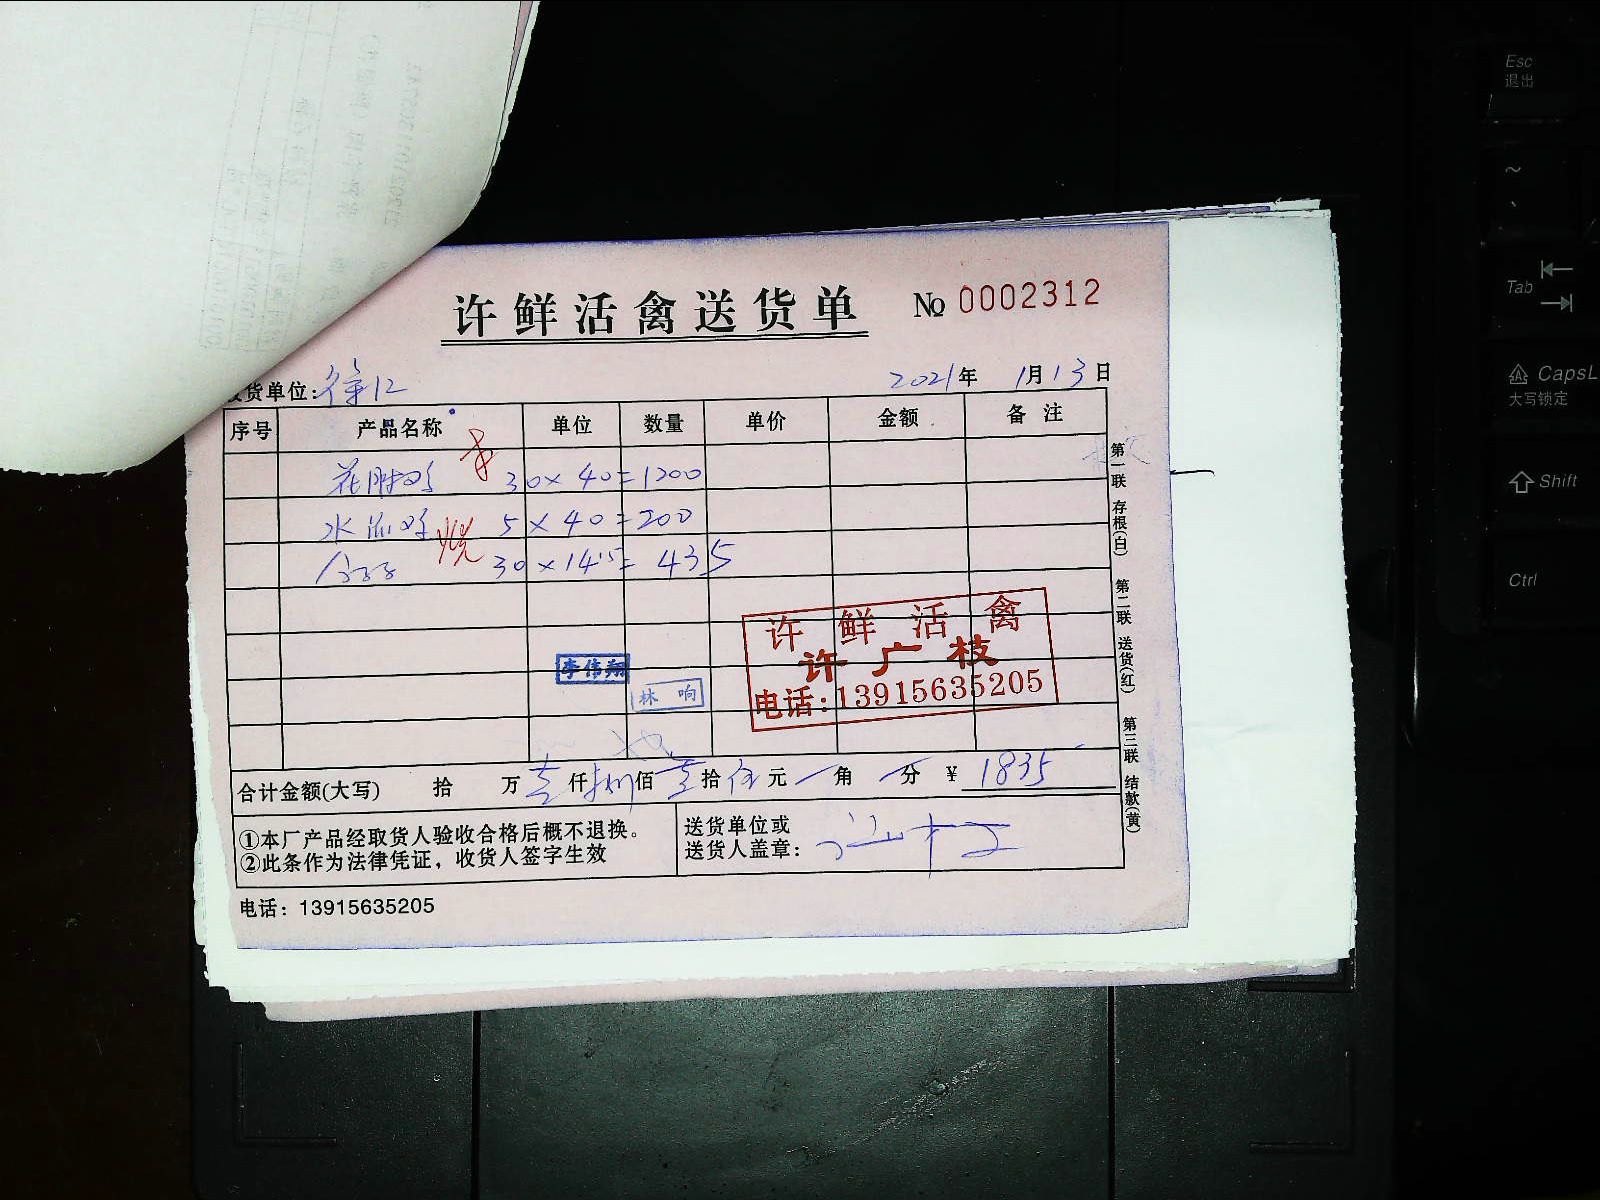 许鲜活禽送货单 No 0002312
货单位: 徐江 2021年 1月13日
序号 产品名称 单位 数量 单价 金额 备注
30×40=1200
水 5×40=200
烧
30×14.5=435
许鲜活禽
许广枝
电话:13915635205
李伟翔
林响
合计金额(大写) 拾 万壹仟捌佰 拾伍元 角 分 ¥ 1835
①本厂产品经取货人验收合格后概不退换。
②此条作为法律凭证，收货人签字生效
送货单位或
送货人盖章:
电话: 13915635205
第一联 存根(白)
第二联 送货(红)
第三联 结款(黄)
Esc
退出
~
Tab
CapsL
大写锁定
Shift
Ctrl